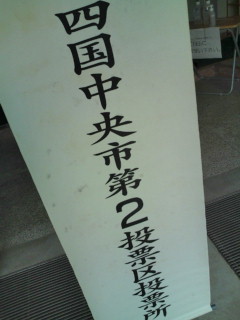 四国中央市第2投票区投票所